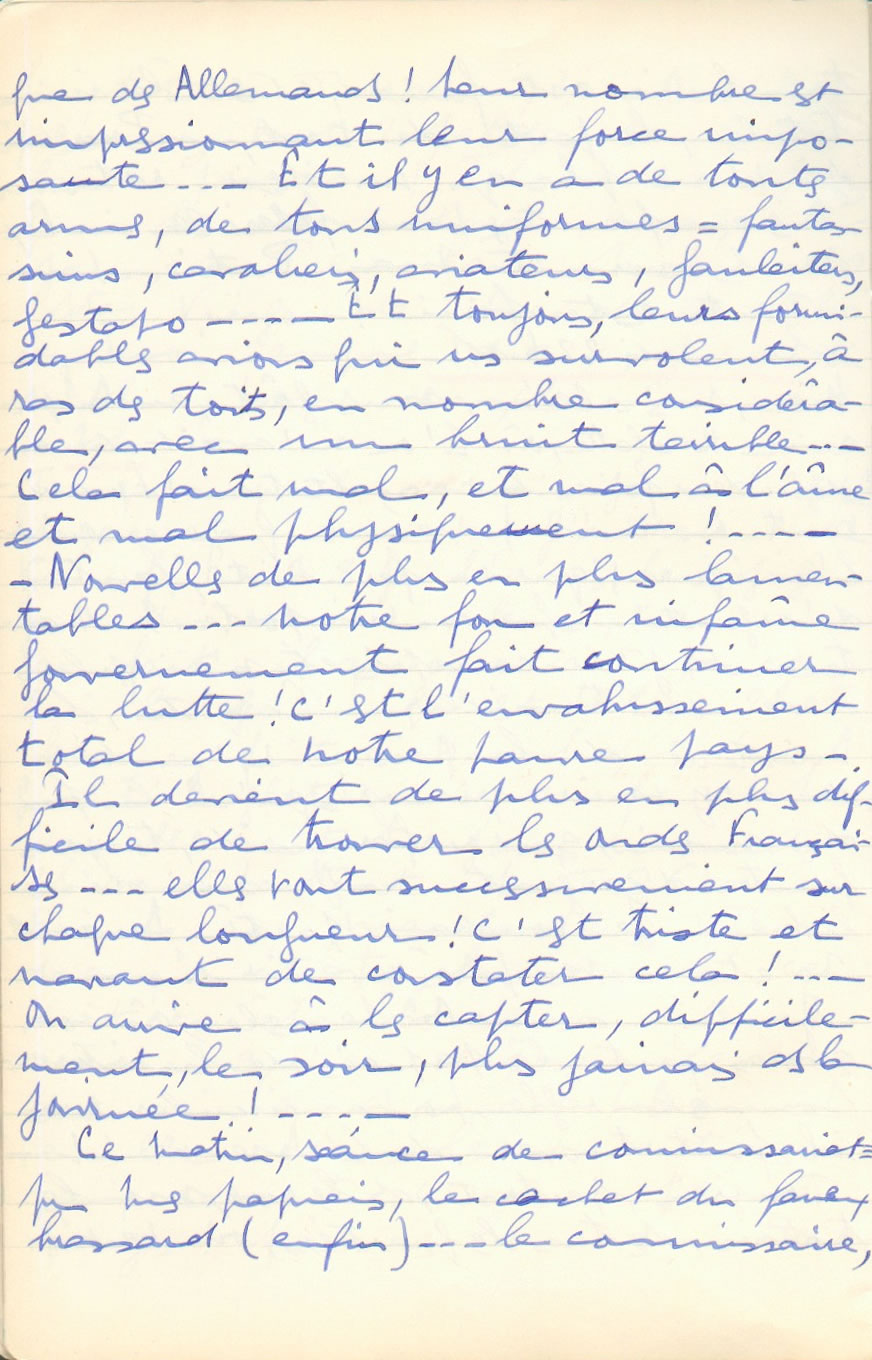 que ds Allemands ! Leur nombre est
impressionnant leur force impo-
sante --- Et il y en a de toutes
armes, de tous uniformes = fantas
sins, cavaliers, aviateurs, gauleiters,
gestapo ---- Et toujours, leurs formi-
dables avions qui ns survolent, à
ras des toits, en nombre considéra-
ble, avec un bruit terrible ---
Cela fait mal, et mal à l'âme
et mal physiquement ! ----
- Nouvelles de plus en plus lamen-
tables --- notre fou et infâme
gouvernement fait continuer
la lutte ! C'est l'envahissement
total de notre pauvre pays -.
Il devient de plus en plus dif-
ficile de trouver les ondes Françai-
ses --- elles vont successivement sur
chaque longueur ! C'est triste et
navrant de constater cela ! ---
On arrive à les capter, difficile-
ment, le soir, plus jamais ds la
journée ! ----
Ce matin, séance de commissariat =
pr mes papiers, le cachet du fameux
brassard (enfin) --- le commissaire,